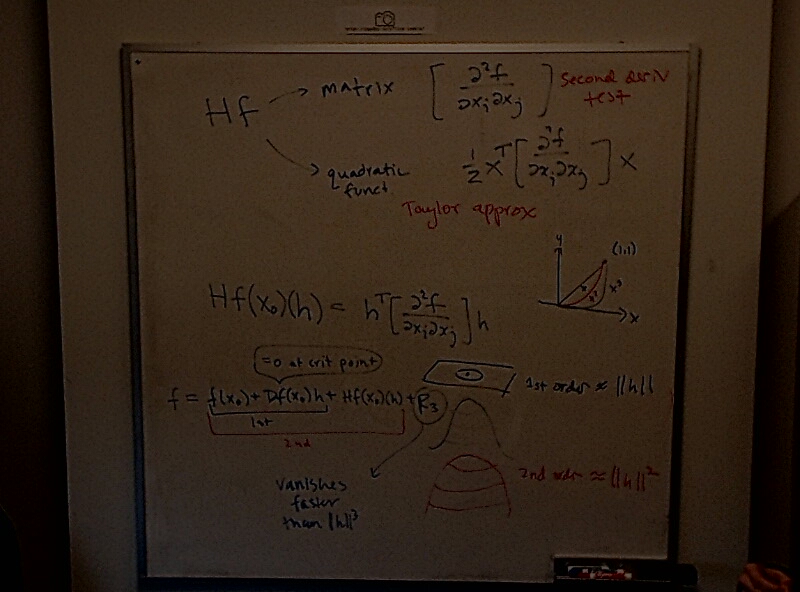 Hf → matrix [∂²f/∂xᵢ∂xⱼ] second deriv test
→ quadratic funct ½ xᵀ [∂²f/∂xᵢ∂xⱼ] x
Taylor approx
y
(1,1)
x x² x³
x
Hf(x₀)(h) = hᵀ [∂²f/∂xᵢ∂xⱼ] h
=0 at crit point
f = f(x₀) + Df(x₀)h + Hf(x₀)(h) + R₃
1st
2nd
1st order ≈ ||h||
2nd order ≈ ||h||²
vanishes
faster
than ||h||³